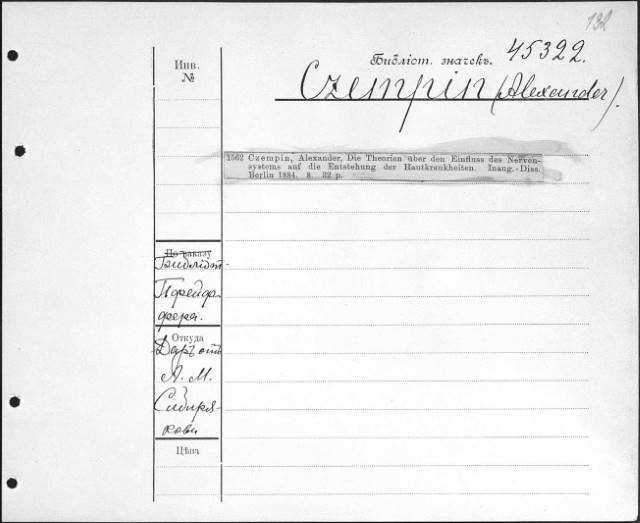 132
Инв.
№
Библіот. значекъ. 45322.
Czempin (Alexander).
1562 Czempin, Alexander, Die Theorien über den Einfluss des Nerven-
systems auf die Entstehung der Hautkrankheiten. Inaug.-Diss.
Berlin 1884. 8. 32 p.
По заказу
Библіот-
Пфейф-
фера.
Откуда
Даръ отъ
А. М.
Сибиря-
кова
Цѣна